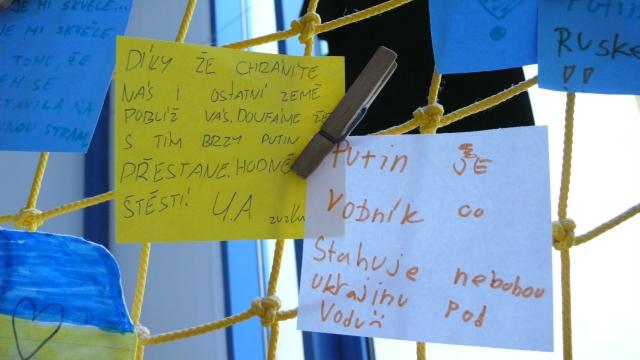 JE MI SKVĚLE...
JE MI SKVĚLE
TOHO, ŽE
SE
STAVILA NA
NOU STRANU
DÍKY ŽE CHRÁNÍTE
NÁŠ I OSTATNÍ ZEMĚ
POBLÍŽ VÁS. DOUFÁME ŽE
S TÍM BRZY PUTIN
PŘESTANE. HODNĚ
ŠTĚSTÍ! U.A
Putin JE
Vodník co
Stahuje nebobou
Ukrajinu pod
Vodu
Putin
Ruske
!!